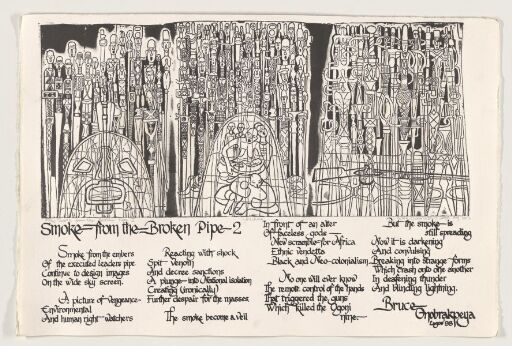 Smoke from the Broken Pipe-2
Smoke from the embers
Of the executed leaders pipe
Continue to design images
On the wide sky screen.
A picture of vengeance
Environmental
And human right watchers
Reacting with shock
Spit Venom
And decree sanctions
A plunge into National isolation
Creating (ironically)
Further despair for the masses
The smoke become a veil
In front of an alter
Of faceless gods
New scramble for Africa
Ethnic vendetta
Black and Neo-colonialism.
No one will ever know
The remote control of the hands
That triggered the guns
Which killed the Ogoni
nine.
But the smoke is
still spreading
Now it is darkening
And convulsing
Breaking into strange forms
Which crash onto one another
In deafening thunder
And blinding lightning.
Bruce
Onobrakpeya